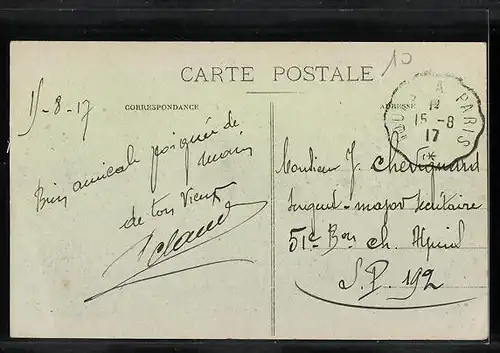 10
CARTE POSTALE
CORRESPONDANCE
ADRESSE
A PARIS
15-8
17
15-8-17
Bien amicale poignée de
main
de ton vieux
Monsieur J. Chevignard
Sergent-major secrétaire
51e Bon ch. Alpins
S.P. 192